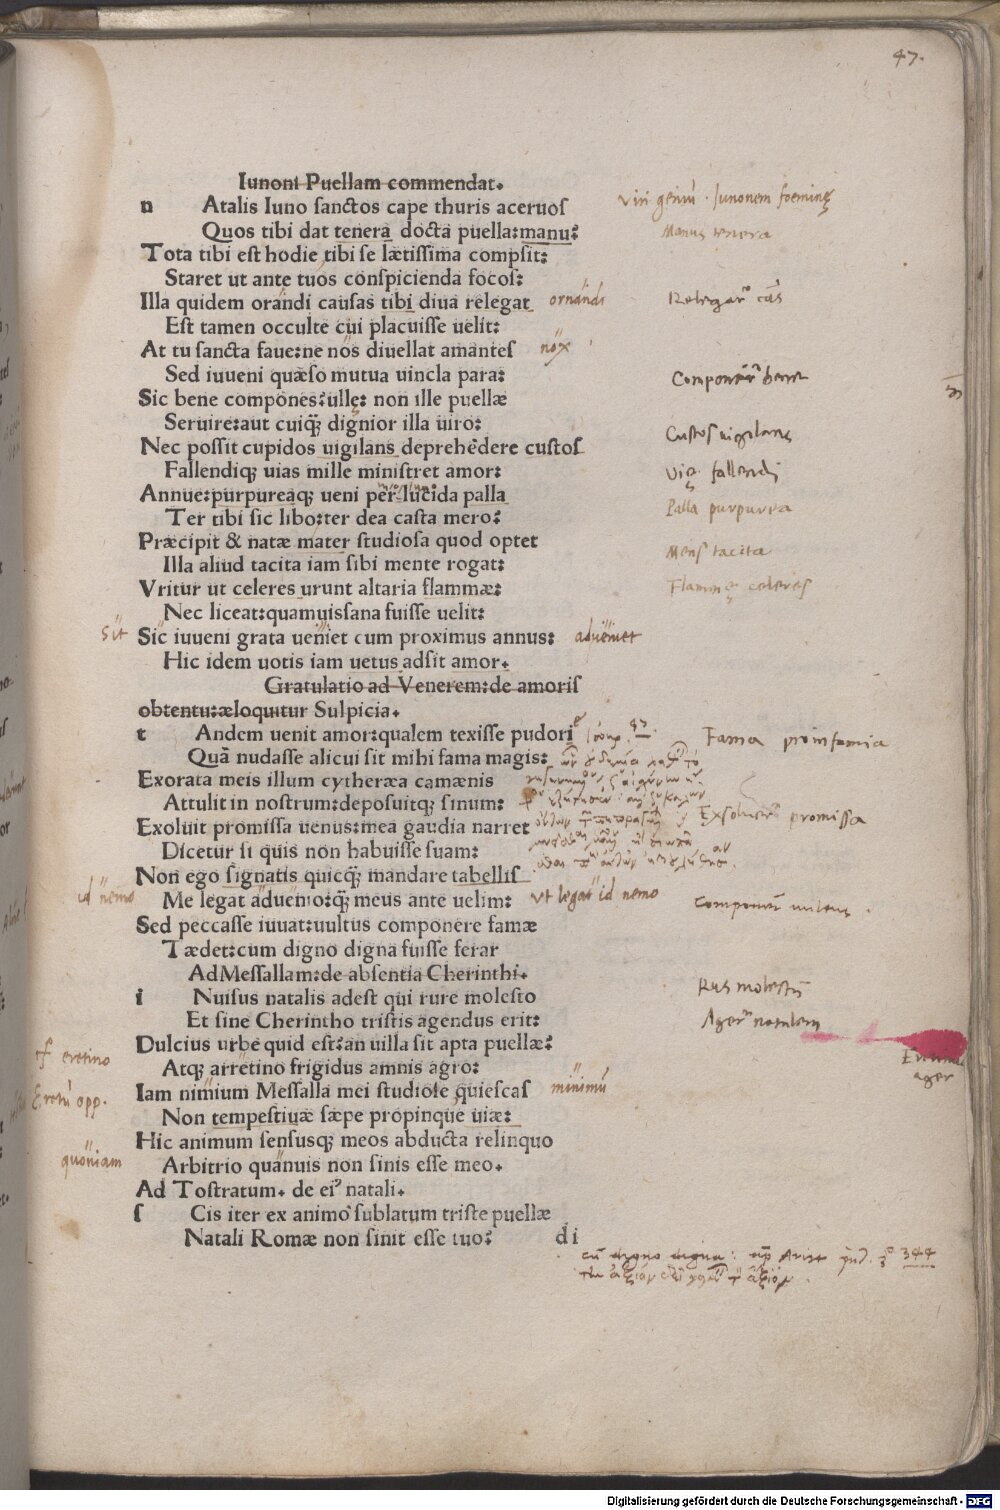 47.
Iunoni Puellam commendat.
n Atalis Iuno sanctos cape thuris aceruos
Quos tibi dat tenera docta puella:manu:
Tota tibi est hodie tibi se lætissima compsit:
Staret ut ante tuos conspicienda focos:
Illa quidem orandi causas tibi diua relegat ornandi
Est tamen occulte cui placuisse uelit:
At tu sancta faue:ne nos diuellat amantes nox
Sed iuueni quæso mutua uincla para:
Sic bene compones:ullę: non ille puellæ
Seruire:aut cuiqꝫ dignior illa uiro:
Nec possit cupidos uigilans deprehēdere custos
Fallendiqꝫ uias mille ministret amor:
Annue:purpureaqꝫ ueni perlucida palla
Ter tibi sic libo:ter dea casta mero:
Præcipit & natæ mater studiosa quod optet
Illa aliud tacita iam sibi mente rogat:
Vritur ut celeres urunt altaria flammæ:
Nec liceat:quamuissana fuisse uelit:
sit Sic iuueni grata ueniet cum proximus annus: adueniet
Hic idem uotis iam uetus adsit amor.
Gratulatio ad Venerem:de amoris
obtentu:æloquitur Sulpicia.
t Andem uenit amor:qualem texisse pudori
Quā nudasse alicui sit mihi fama magis:
Exorata meis illum cytheræa camænis
Attulit in nostrum:deposuitqꝫ sinum:
Exoluit promissa uenus:mea gaudia narret
Dicetur si quis non habuisse suam:
Non ego signatis quicqꝫ mandare tabellis
id nemo Me legat aduenio:qꝫ meus ante uelim: ut legat id nemo
Sed peccasse iuuat:uultus componere famæ
Tædet:cum digno digna fuisse ferar
Ad Messallam:de absentia Cherinthi.
i Nuisus natalis adest qui rure molesto
Et sine Cherintho tristis agendus erit:
Dulcius urbe quid est:an uilla sit apta puellæ:
Atqꝫ arretino frigidus amnis agro:
Iam nimium Messalla mei studiose quiescas minimū
Non tempestiuæ sæpe propinque uiæ:
Hic animum sensusqꝫ meos abducta relinquo
Arbitrio quanuis non sinis esse meo.
Ad Tostratum. de eiꝰ natali.
s Cis iter ex animo sublatum triste puellæ
Natali Romæ non sinit esse tuo: di
Viri geniū . Junonem foeminę
Manus tenera
Custos uigilans
Vię fallendi
Palla purpurea
Mens tacita
Flammę celeres
Fama pro infamia
promissa
Rus molestū
natalem
ager
eretino
Eretū opp.
quoniam
cū digno digna: 344
Digitalisierung gefördert durch die Deutsche Forschungsgemeinschaft - DFG